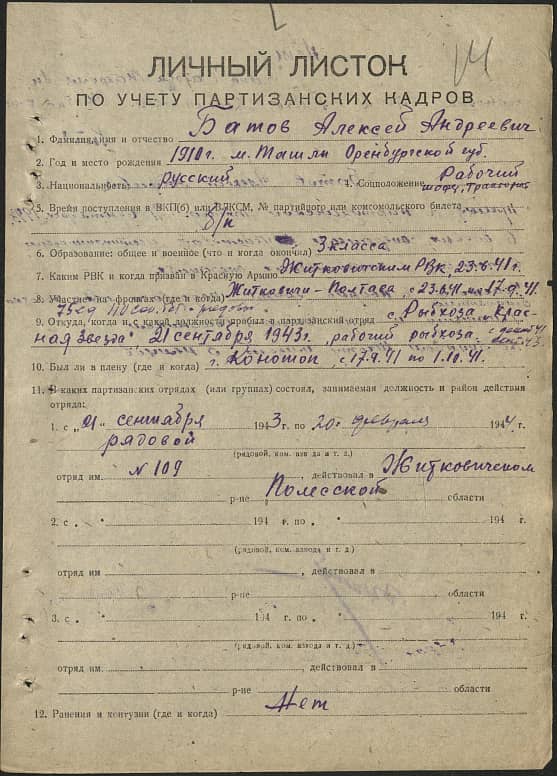 ЛИЧНЫЙ ЛИСТОК
ПО УЧЕТУ ПАРТИЗАНСКИХ КАДРОВ
1. Фамилия, имя и отчество Батов Алексей Андреевич
2. Год и место рождения 1910 г. м. Ташли Оренбургской губ.
3. Национальность русский 4. Соцположение Рабочий
шофер, тракторист
5. Время поступления в ВКП(б) или ВЛКСМ, № партийного или комсомольского билета
б/п
6. Образование: общее и военное (что и когда окончил) 3 класса
7. Каким РВК и когда призван в Красную Армию Житковичским РВК 23.6.41 г.
8. Участие на фронтах (где и когда) Житковичи - Полтава, с 23.6.41 по 17.9.41
75 сд рядовой
9. Откуда, когда и с какой должности прибыл в партизанский отряд с Рыбхоза „Крас-
ная Звезда" 21 сентября 1943 г. рабочий рыбхоза
10. Был ли в плену (где и когда) г. Конотоп, с 17.9.41 по 1.10.41.
11. В каких партизанских отрядах (или группах) состоял, занимаемая должность и район действия
отряда:
1. с „21" сентября 1943 г. по 20 февраля 1944 г.
рядовой
(рядовой, ком. взвода и т. д.)
отряд им № 109, действовал в Житковичском
р-не Полесской области
2. с „ " 194 г. по „ " 194 г.
(рядовой, ком. взвода и т. д.)
отряд им , действовал в
р-не области
3. с „ " 194 г. по „ " 194 г.
(рядовой, ком. взвода и т. д.)
отряд им , действовал в
р-не области
12. Ранения и контузии (где и когда) Нет